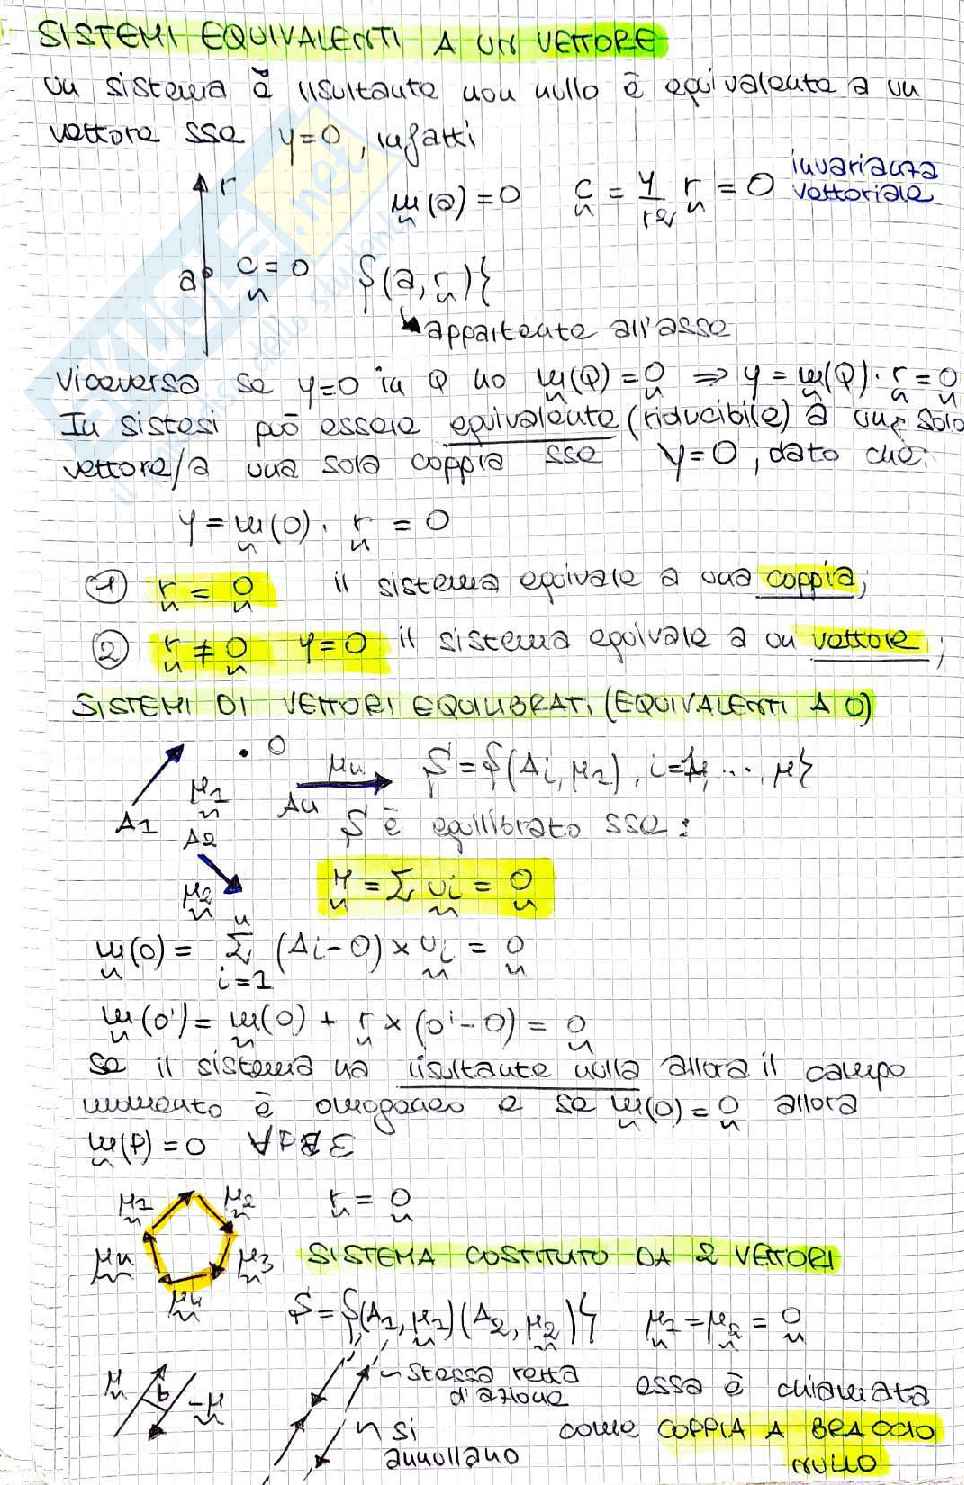 SISTEMI EQUIVALENTI A UN VETTORE
un sistema a risultante non nullo è equivalente a un
vettore sse γ=0, infatti
r m(a)=0 c = γ/r² r = 0 invarianza vettoriale
a c=0 {(a, r)}
appartenente all'asse
Viceversa se γ=0 in Q ho m(Q)=0 ⇒ γ=m(Q)·r=0
In sistesi può essere equivalente (riducibile) a un solo
vettore/a una sola coppia sse γ=0, dato che:
γ=m(0)·r=0
① r=0 il sistema equivale a una coppia;
② r≠0 γ=0 il sistema equivale a un vettore;
SISTEMI DI VETTORI EQUILIBRATI (EQUIVALENTI A 0)
A1 μ1 O μn An
S={(Ai, μ2), i=1, ..., μ}
A2 μ2 S è equilibrato sse:
r=Σ ui=0
m(0)=Σ (Ai-O)×ui=0
n
i=1
m(0')=m(0)+r×(0'-0)=0
se il sistema ha risultante nulla allora il campo
momento è omogeneo e se m(0)=0 allora
m(P)=0 ∀P∈
μ1 μ2 μ3 μ4 μn r=0
SISTEMA COSTITUTO DA 2 VETTORI
S={(A1, μ1)(A2, μ2)} μ1=μ2=0
μ b -μ
stessa retta
d'azione
si
annullano
essa è chiamata
come COPPIA A BRACCIO
NULLO